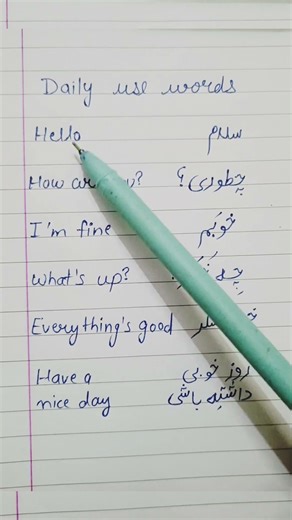 Daily use words
Hello سلام
How چطوری؟
I'm fine خوبم
What's up?
Everything's good
Have a روز خوبی
nice day داشته باشی